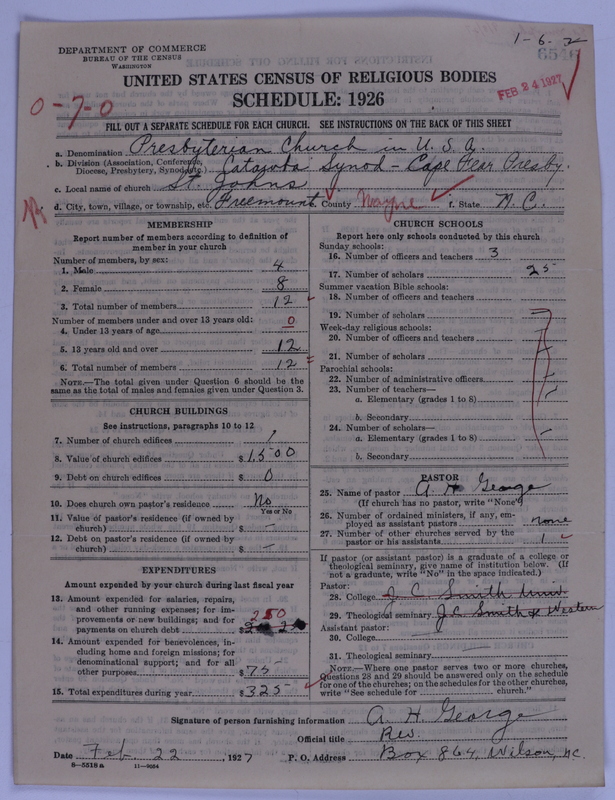 1-6-2
6546
DEPARTMENT OF COMMERCE
BUREAU OF THE CENSUS
WASHINGTON
UNITED STATES CENSUS OF RELIGIOUS BODIES
FEB 24 1927
SCHEDULE: 1926
0-7-0
FILL OUT A SEPARATE SCHEDULE FOR EACH CHURCH. SEE INSTRUCTIONS ON THE BACK OF THIS SHEET
a. Denomination Presbyterian Church in U. S. A.
b. Division (Association, Conference, Diocese, Presbytery, Synod, etc.) Catawba Synod - Cape Fear Presby.
c. Local name of church St. Johns
d. City, town, village, or township, etc. Freemount e. County Wayne f. State N. C.
MEMBERSHIP
Report number of members according to definition of
member in your church
Number of members, by sex:
1. Male 4
2. Female 8
3. Total number of members 12
Number of members under and over 13 years old:
4. Under 13 years of age 0
5. 13 years old and over 12
6. Total number of members 12
NOTE.—The total given under Question 6 should be the
same as the total of males and females given under Question 3.
CHURCH BUILDINGS
See instructions, paragraphs 10 to 12
7. Number of church edifices 1
8. Value of church edifices $1500
9. Debt on church edifices $ 0
10. Does church own pastor's residence No
Yes or No
11. Value of pastor's residence (if owned by
church) $ —
12. Debt on pastor's residence (if owned by
church) $ —
EXPENDITURES
Amount expended by your church during last fiscal year
13. Amount expended for salaries, repairs,
and other running expenses; for im-
provements or new buildings; and for
payments on church debt $ 250
14. Amount expended for benevolences, in-
cluding home and foreign missions; for
denominational support; and for all
other purposes $ 75
15. Total expenditures during year $ 325
CHURCH SCHOOLS
Report here only schools conducted by this church
Sunday schools:
16. Number of officers and teachers 3
17. Number of scholars 25
Summer vacation Bible schools:
18. Number of officers and teachers
19. Number of scholars
Week-day religious schools:
20. Number of officers and teachers
21. Number of scholars
Parochial schools:
22. Number of administrative officers
23. Number of teachers—
a. Elementary (grades 1 to 8)
b. Secondary
24. Number of scholars—
a. Elementary (grades 1 to 8)
b. Secondary
PASTOR
25. Name of pastor A H George
(If church has no pastor, write "None")
26. Number of ordained ministers, if any, em-
ployed as assistant pastors none
27. Number of other churches served by the
pastor or his assistants 1
If pastor (or assistant pastor) is a graduate of a college or
theological seminary, give name of institution below. (If
not a graduate, write "No" in the space indicated.)
Pastor:
28. College J. C. Smith Univ
29. Theological seminary J.C. Smith & Western
Assistant pastor:
30. College
31. Theological seminary
NOTE.—Where one pastor serves two or more churches,
Questions 28 and 29 should be answered only on the schedule
for one of the churches; on the schedules for the other churches,
write "See schedule for church."
Signature of person furnishing information A. H. George
Official title Rev.
Date Feb. 22, 1927 P. O. Address Box 864, Wilson, N.C.
8—5518 a 11—9084